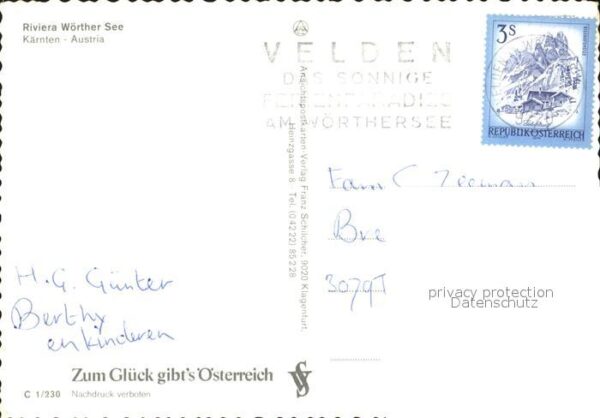 Riviera Wörther See
Kärnten - Austria
VELDEN
DAS SONNIGE
FERIENPARADIES
AM WÖRTHERSEE
3S
REPUBLIK ÖSTERREICH
Ansichtspostkarten-Verlag Franz Schilcher, 9020 Klagenfurt,
Heinzgasse 8 Tel. (0 42 22) 85 2 28
Fam C Zeeman
3079T
privacy protection
Datenschutz
H. G. Günter
Berthy
en kinderen
Zum Glück gibt's Österreich
C 1/230 Nachdruck verboten